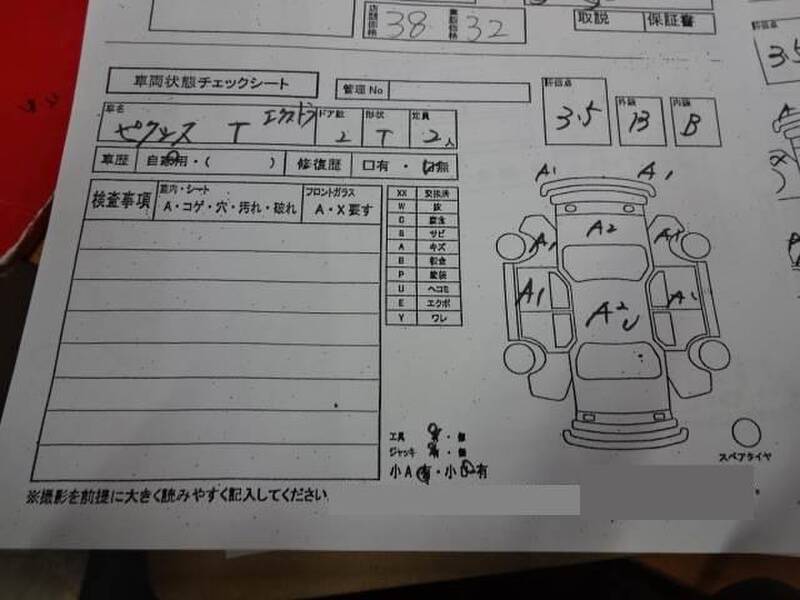 店頭価格 38 業販価格 32
取説 保証書
車両状態チェックシート
管理No
評価点 3.5 外装 B 内装 B
車名 ピクシス T エクストラ ドア数 2 形状 T 定員 2人
車歴 自家用・( ) 修復歴 口有・口無
検査事項 室内・シート フロントガラス
A・コゲ・穴・汚れ・破れ A・X要す
XX 交換済
W 波
C 腐食
S サビ
A キズ
B 板金
P 塗装
U ヘコミ
E エクボ
Y ワレ
A1 A1
A2
A1 A1
A1 A1
A2 U
工具 有・無
ジャッキ 有・無
小A有・小U有
スペアタイヤ
※撮影を前提に大きく読みやすく記入してください
3.5